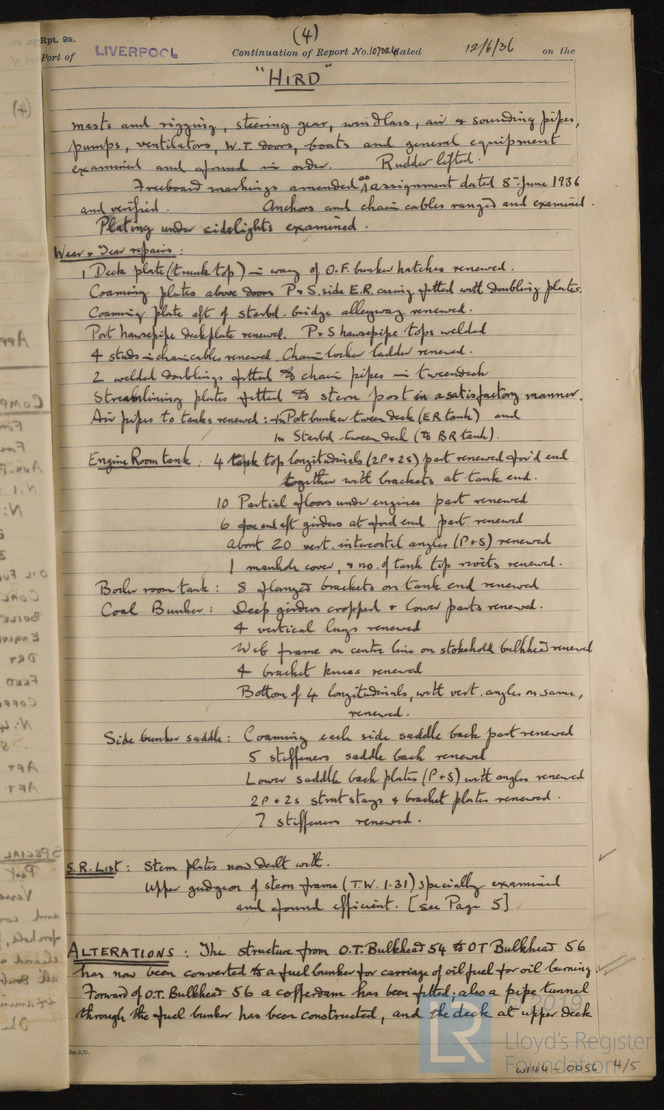 (4)
Rpt. 9a.
Port of LIVERPOOL Continuation of Report No. 107224 dated 12/6/36 on the
"HIRD"
masts and rigging, steering gear, windlass, air & sounding pipes,
pumps, ventilators, W.T. doors, boats and general equipment
examined and found in order. Rudder lifted.
Freeboard markings amended as assignment dated 8th June 1936
and verified. Anchors and chain cables ranged and examined.
Plating under sidelights examined.
Wear & Tear repairs:
1 Deck plate (trunk top) in way of O.F. bunker hatches renewed.
Coaming plates above doors P & S. side E.R. casing fitted with doubling plates.
Coaming plate aft of starbd. bridge alleyway renewed.
Port hawsepipe deckplate renewed. P & S hawsepipe tops welded
4 studs in chain cables renewed. Chain locker ladder renewed.
2 welded doublings fitted to chain pipes in tweendeck
Streamlining plates fitted to stern post in a satisfactory manner.
Air pipes to tanks renewed: In Port bunker tween deck (ER tank) and
In Starbd tween deck (to BR tank).
Engine Room tank: 4 tank top longitudinals (2P & 2S) part renewed for'd end
together with brackets at tank end.
10 Partial floors under engines part renewed
6 fore and aft girders at ford end part renewed
about 20 vert. intercostal angles (P & S) renewed
1 manhole cover, & no. of tank top rivets renewed.
Boiler room tank: 8 flanged brackets on tank end renewed
Coal Bunker: Deep girders cropped & lower parts renewed.
4 vertical lugs renewed
Web frame on centre line on stokehold bulkhead renewed
4 bracket knees renewed
Bottom of 4 longitudinals, with vert. angles on same,
renewed.
Side bunker saddle: Coaming each side saddle back part renewed
5 stiffeners saddle back renewed
Lower saddle back plates (P & S) with angles renewed
2P & 2S strut stays & bracket plates renewed.
7 stiffeners renewed.
S.R. List: Stem plates now dealt with.
Upper gudgeon of stern frame (T.W. 1.31) specially examined
and found efficient. [see Page 5]
ALTERATIONS: The structure from O.T. Bulkhead 54 to OT Bulkhead 56
has now been converted to a fuel bunker for carriage of oil fuel for oil burning
Forward of O.T. Bulkhead 56 a cofferdam has been fitted; also a pipe tunnel
through the fuel bunker has been constructed, and the deck at upper deck
© 2019
LR
Lloyd's Register
Foundation
W144-0056 4/5